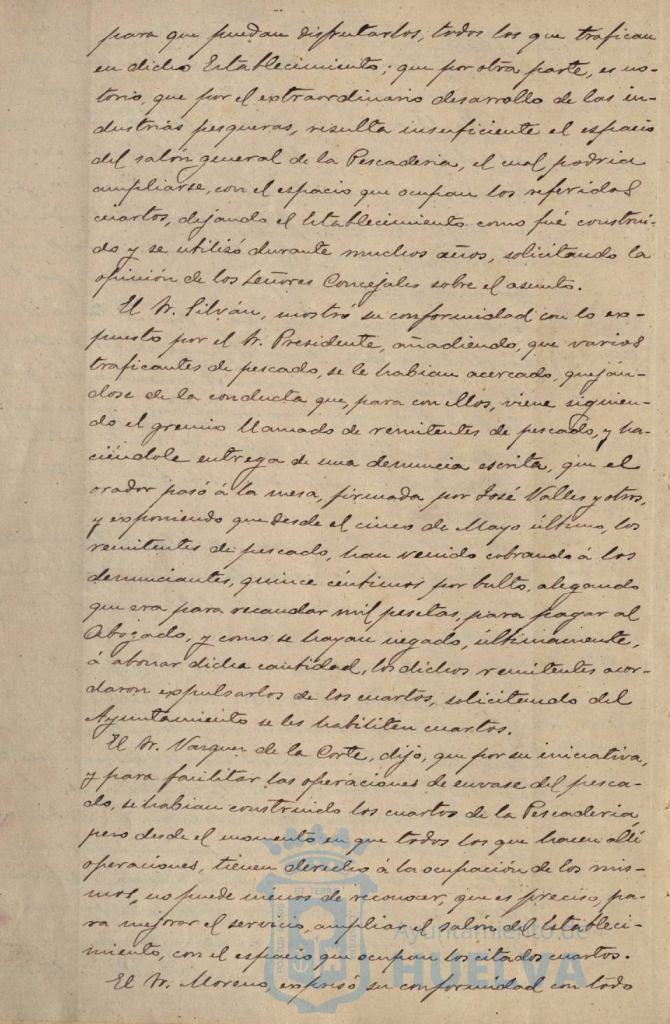 para que puedan disfrutarlos, todos los que trafican
en dicho Establecimiento; que por otra parte, es no-
torio, que por el extraordinario desarrollo de las in-
dustrias pesqueras, resulta insuficiente el espacio
del salón general de la Pescaderia, el cual podria
ampliarse, con el espacio que ocupan los referidos
cuartos, dejando el Establecimiento como fué construi-
do y se utilizó durante muchos años, solicitando la
opinión de los Señores Concejales sobre el asunto.
El Sr. Silván, mostró su conformidad con lo ex-
puesto por el Sr. Presidente, añadiendo, que varios
traficantes de pescado, se le habian acercado, queján-
dose de la conducta que, para con ellos, viene siguien-
do el gremio llamado de remitentes de pescado, y ha-
ciéndole entrega de una denuncia escrita, que el
orador pasó á la mesa, firmada por José Valles y otros,
y exponiendo que desde el cinco de Mayo último, los
remitentes de pescado, han venido cobrando á los
denunciantes, quince céntimos por bulto, alegando
que era para recaudar mil pesetas, para pagar al
Abogado, y como se hayan negado, últimamente,
á abonar dicha cantidad, los dichos remitentes acor-
daron expulsarlos de los cuartos, solicitando del
Ayuntamiento se les habiliten cuartos.
El Sr. Vazquez de la Corte, dijo, que por su iniciativa,
y para facilitar las operaciones de envase del pesca-
do, se habian construido los cuartos de la Pescaderia,
pero desde el momento en que todos los que hacen allí
operaciones, tienen derecho á la ocupación de los mis-
mos, no puede menos de reconocer, que es preciso, pa-
ra mejorar el servicio, ampliar el salón del Estableci-
miento, con el espacio que ocupan los citados cuartos.
El Sr. Moreno, expresó su conformidad con todo
Ayuntamiento de
HUELVA